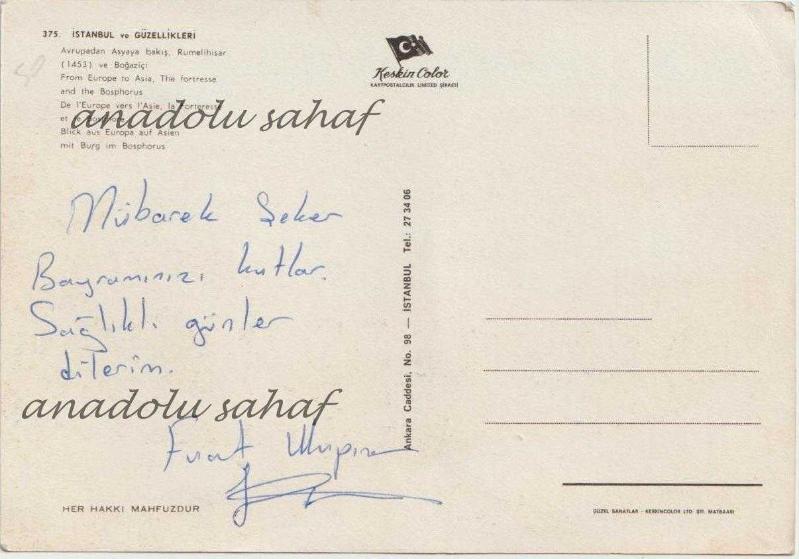 375. İSTANBUL ve GÜZELLİKLERİ
Avrupadan Asyaya bakış, Rumelihisar
(1453) ve Boğaziçi
From Europe to Asia, The fortresse
and the Bosphorus
De l'Europe vers l'Asie, la Forteresse
et le Bosphore
Blick aus Europa auf Asien
mit Burg im Bosphorus
anadolu sahaf
Keskin Color
KARTPOSTALCILIK LIMITED ŞİRKETİ
Mübarek Şeker
Bayramınızı kutlar.
Sağlıklı günler
dilerim.
anadolu sahaf
Fırat
HER HAKKI MAHFUZDUR
Ankara Caddesi, No. 98 — İSTANBUL Tel.: 27 34 06
GÜZEL SANATLAR - KESKİNCOLOR LTD. ŞTİ. MATBAASI